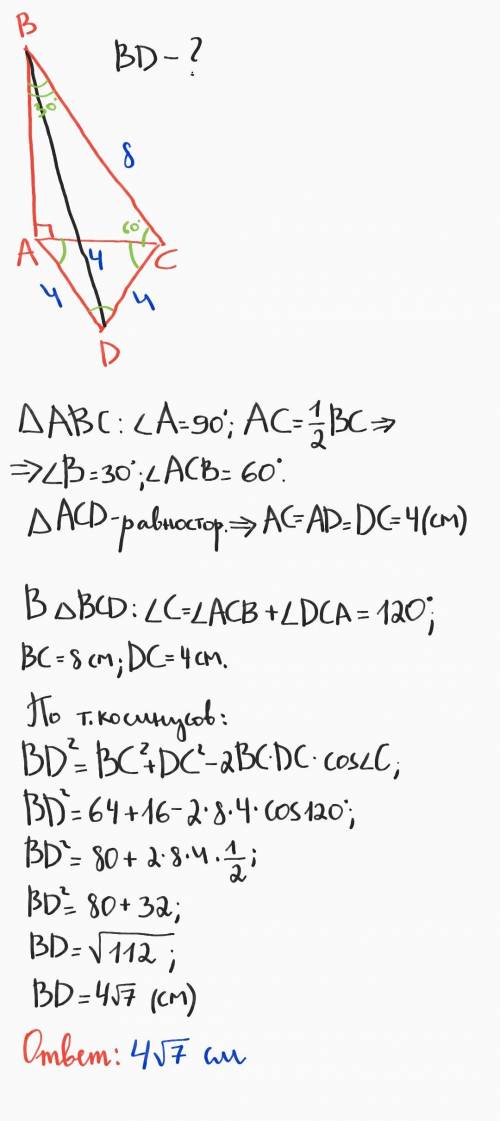 B
BD-?
30°
8
60°
A
4
C
4
4
D
△ABC: ∠A=90°; AC=1/2BC⇒
⇒∠B=30°; ∠ACB=60°.
△ACD-равностор.⇒AC=AD=DC=4(см)
В △BCD: ∠C=∠ACB+∠DCA=120°;
BC=8см; DC=4см.
По т.косинусов:
BD²=BC²+DC²-2BC·DC·cos∠C;
BD²=64+16-2·8·4·cos120°;
BD²=80+2·8·4·1/2;
BD²=80+32;
BD=√112;
BD=4√7 (см)
Ответ: 4√7 см